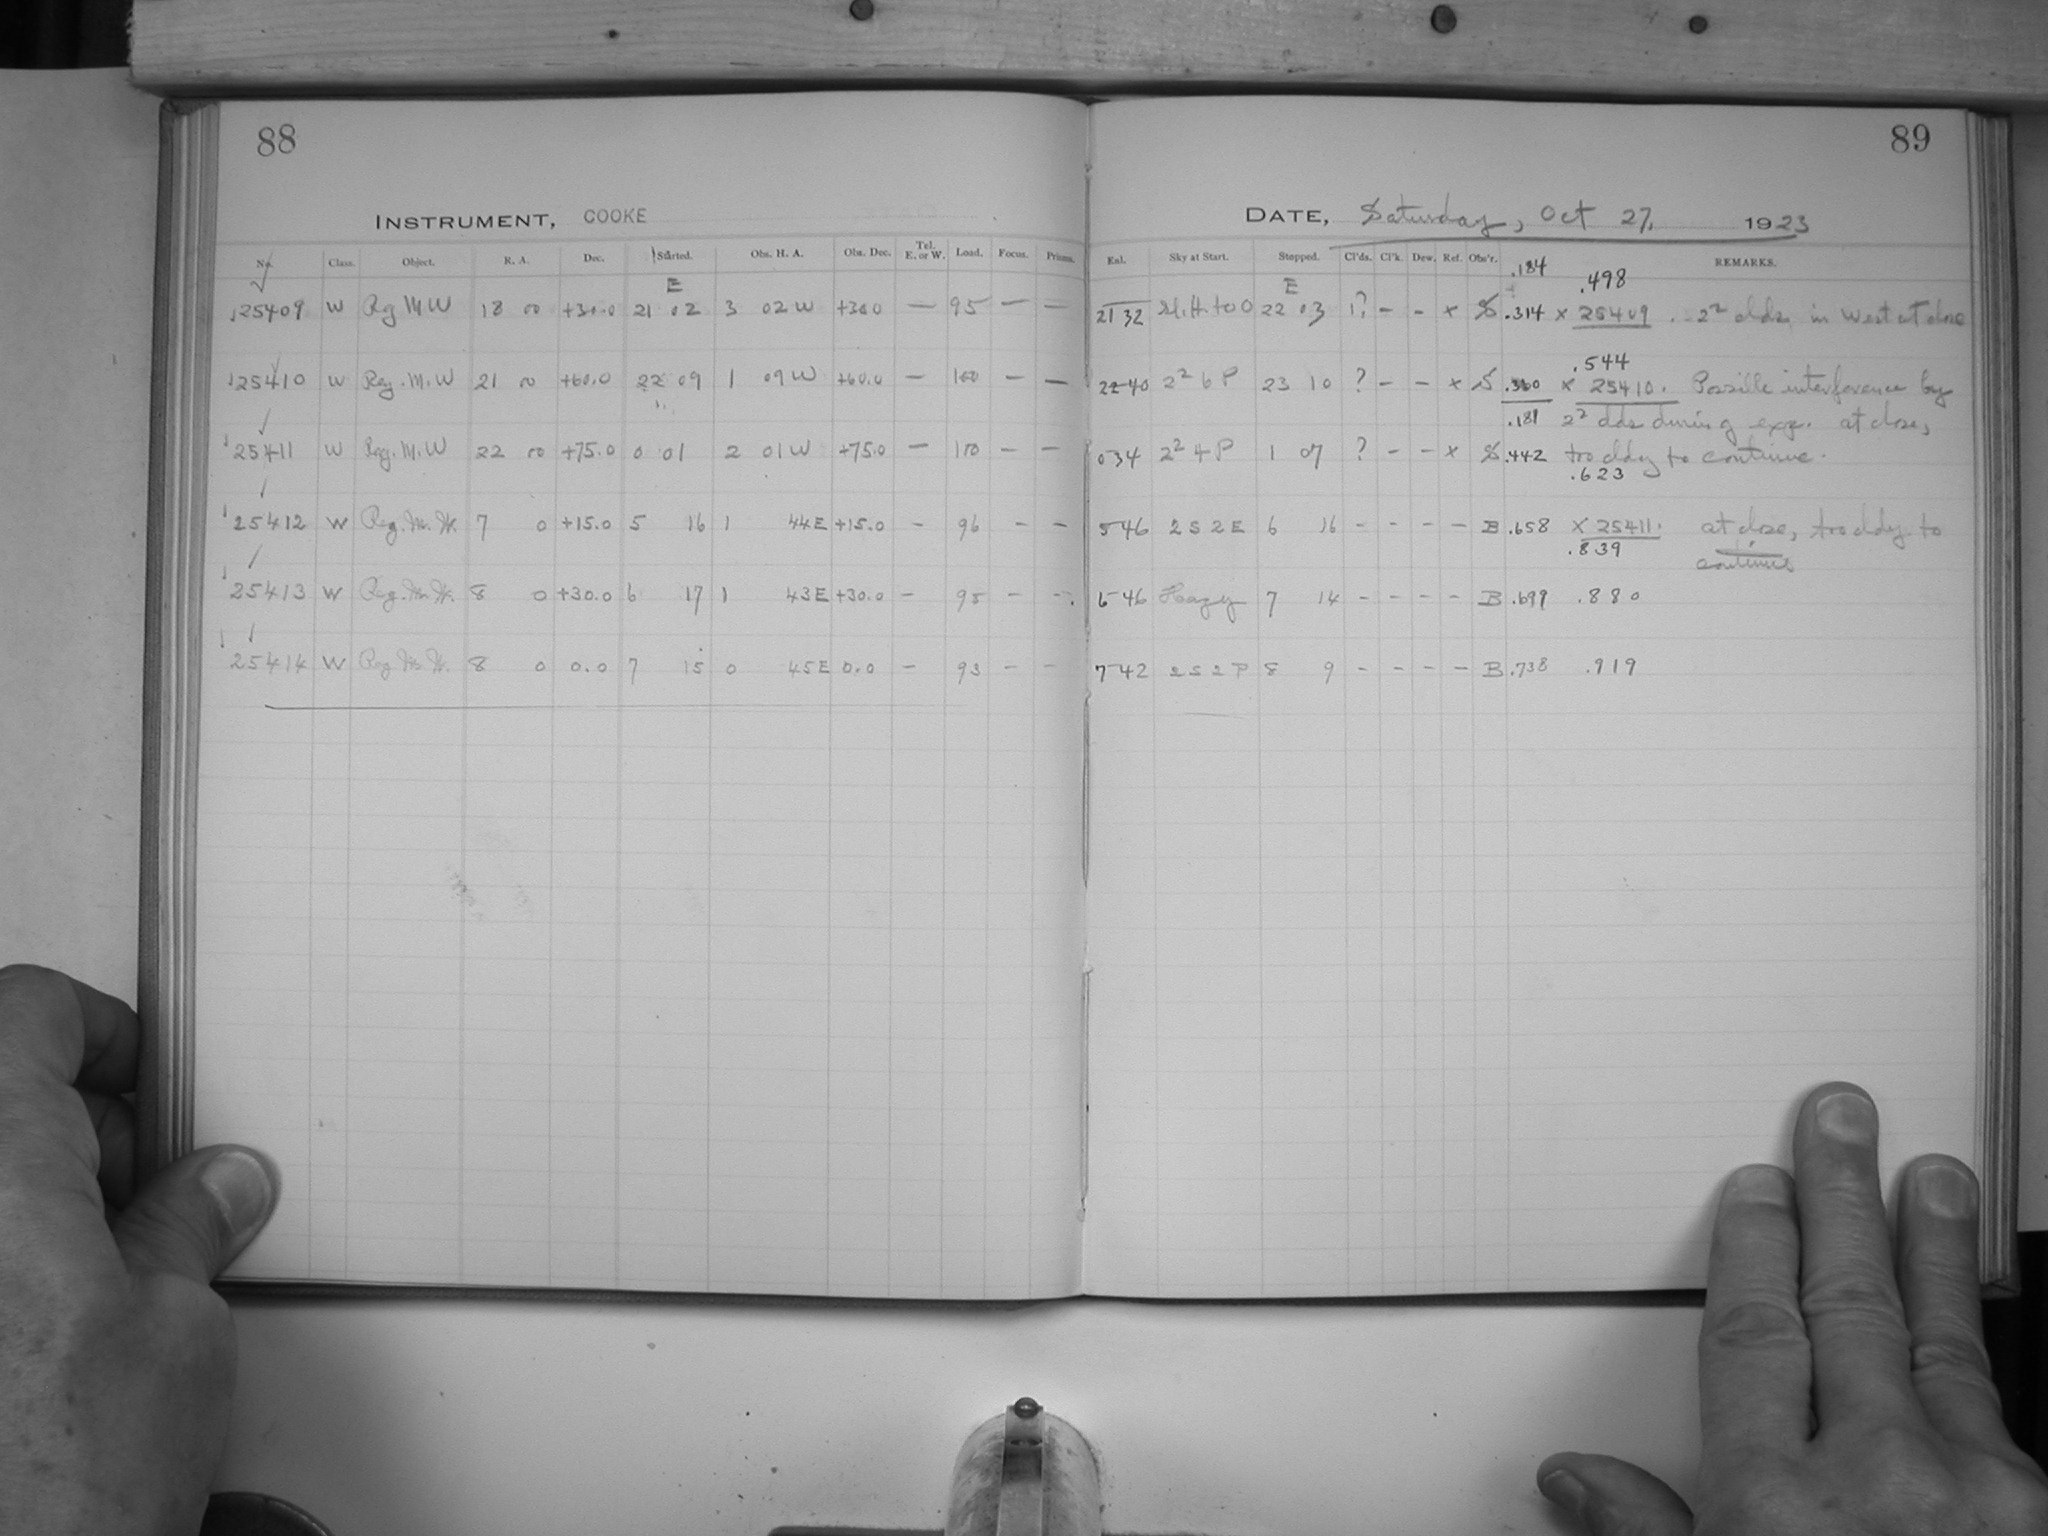 88
89
INSTRUMENT, COOKE
DATE, Saturday, Oct 27, 1923
No. Class. Object. R. A. Dec. Started. Obs. H. A. Obs. Dec. Tel. E. or W. Load. Focus. Prisms. Enl. Sky at Start. Stopped. Cl'ds. Cl'k. Dew. Ref. Obs'r. REMARKS.
E E .184 .498
25409 W Reg M W 18 00 +30.0 21 02 3 02 W +30.0 — 95 — — 21 32 to 0 22 03 1? - - x S .314 x 25409. 2² clds. in West at close
.544
25410 W Reg. M. W 21 00 +60.0 22 09 1 09 W +60.0 — 100 — — 22 40 2² 6 P 23 10 ? - - x S .360 x 25410. Possible interference by
.181 2² clds during exp. at close,
25411 W Reg. M. W 22 00 +75.0 0 01 2 01 W +75.0 — 100 — — 0 34 2² 4 P 1 07 ? - - x S .442 too cldy to continue.
.623
25412 W Reg. M. W. 7 0 +15.0 5 16 1 44 E +15.0 - 96 - - 5 46 2 S 2 E 6 16 - - - - B .658 x 25411. at close, too cldy to
.839 continue
25413 W Reg. M. W. 8 0 +30.0 6 17 1 43 E +30.0 - 95 - - 6 46 Hazy 7 14 - - - - B .699 .880
25414 W Reg. M. W. 8 0 0.0 7 15 0 45 E 0.0 - 93 - - 7 42 2 S 2 P 8 9 - - - - B .738 .919